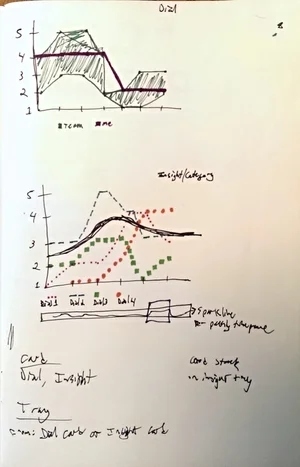 Dial
5
4
3
2
1
Team
me
Insight/Category
5
4
3
2
1
Dial 1
Dial 2
Dial 3
Dial 4
Sparkline
Card
Dial, Insight
Card stack
in insight tray
Tray
Dial card or Insight card